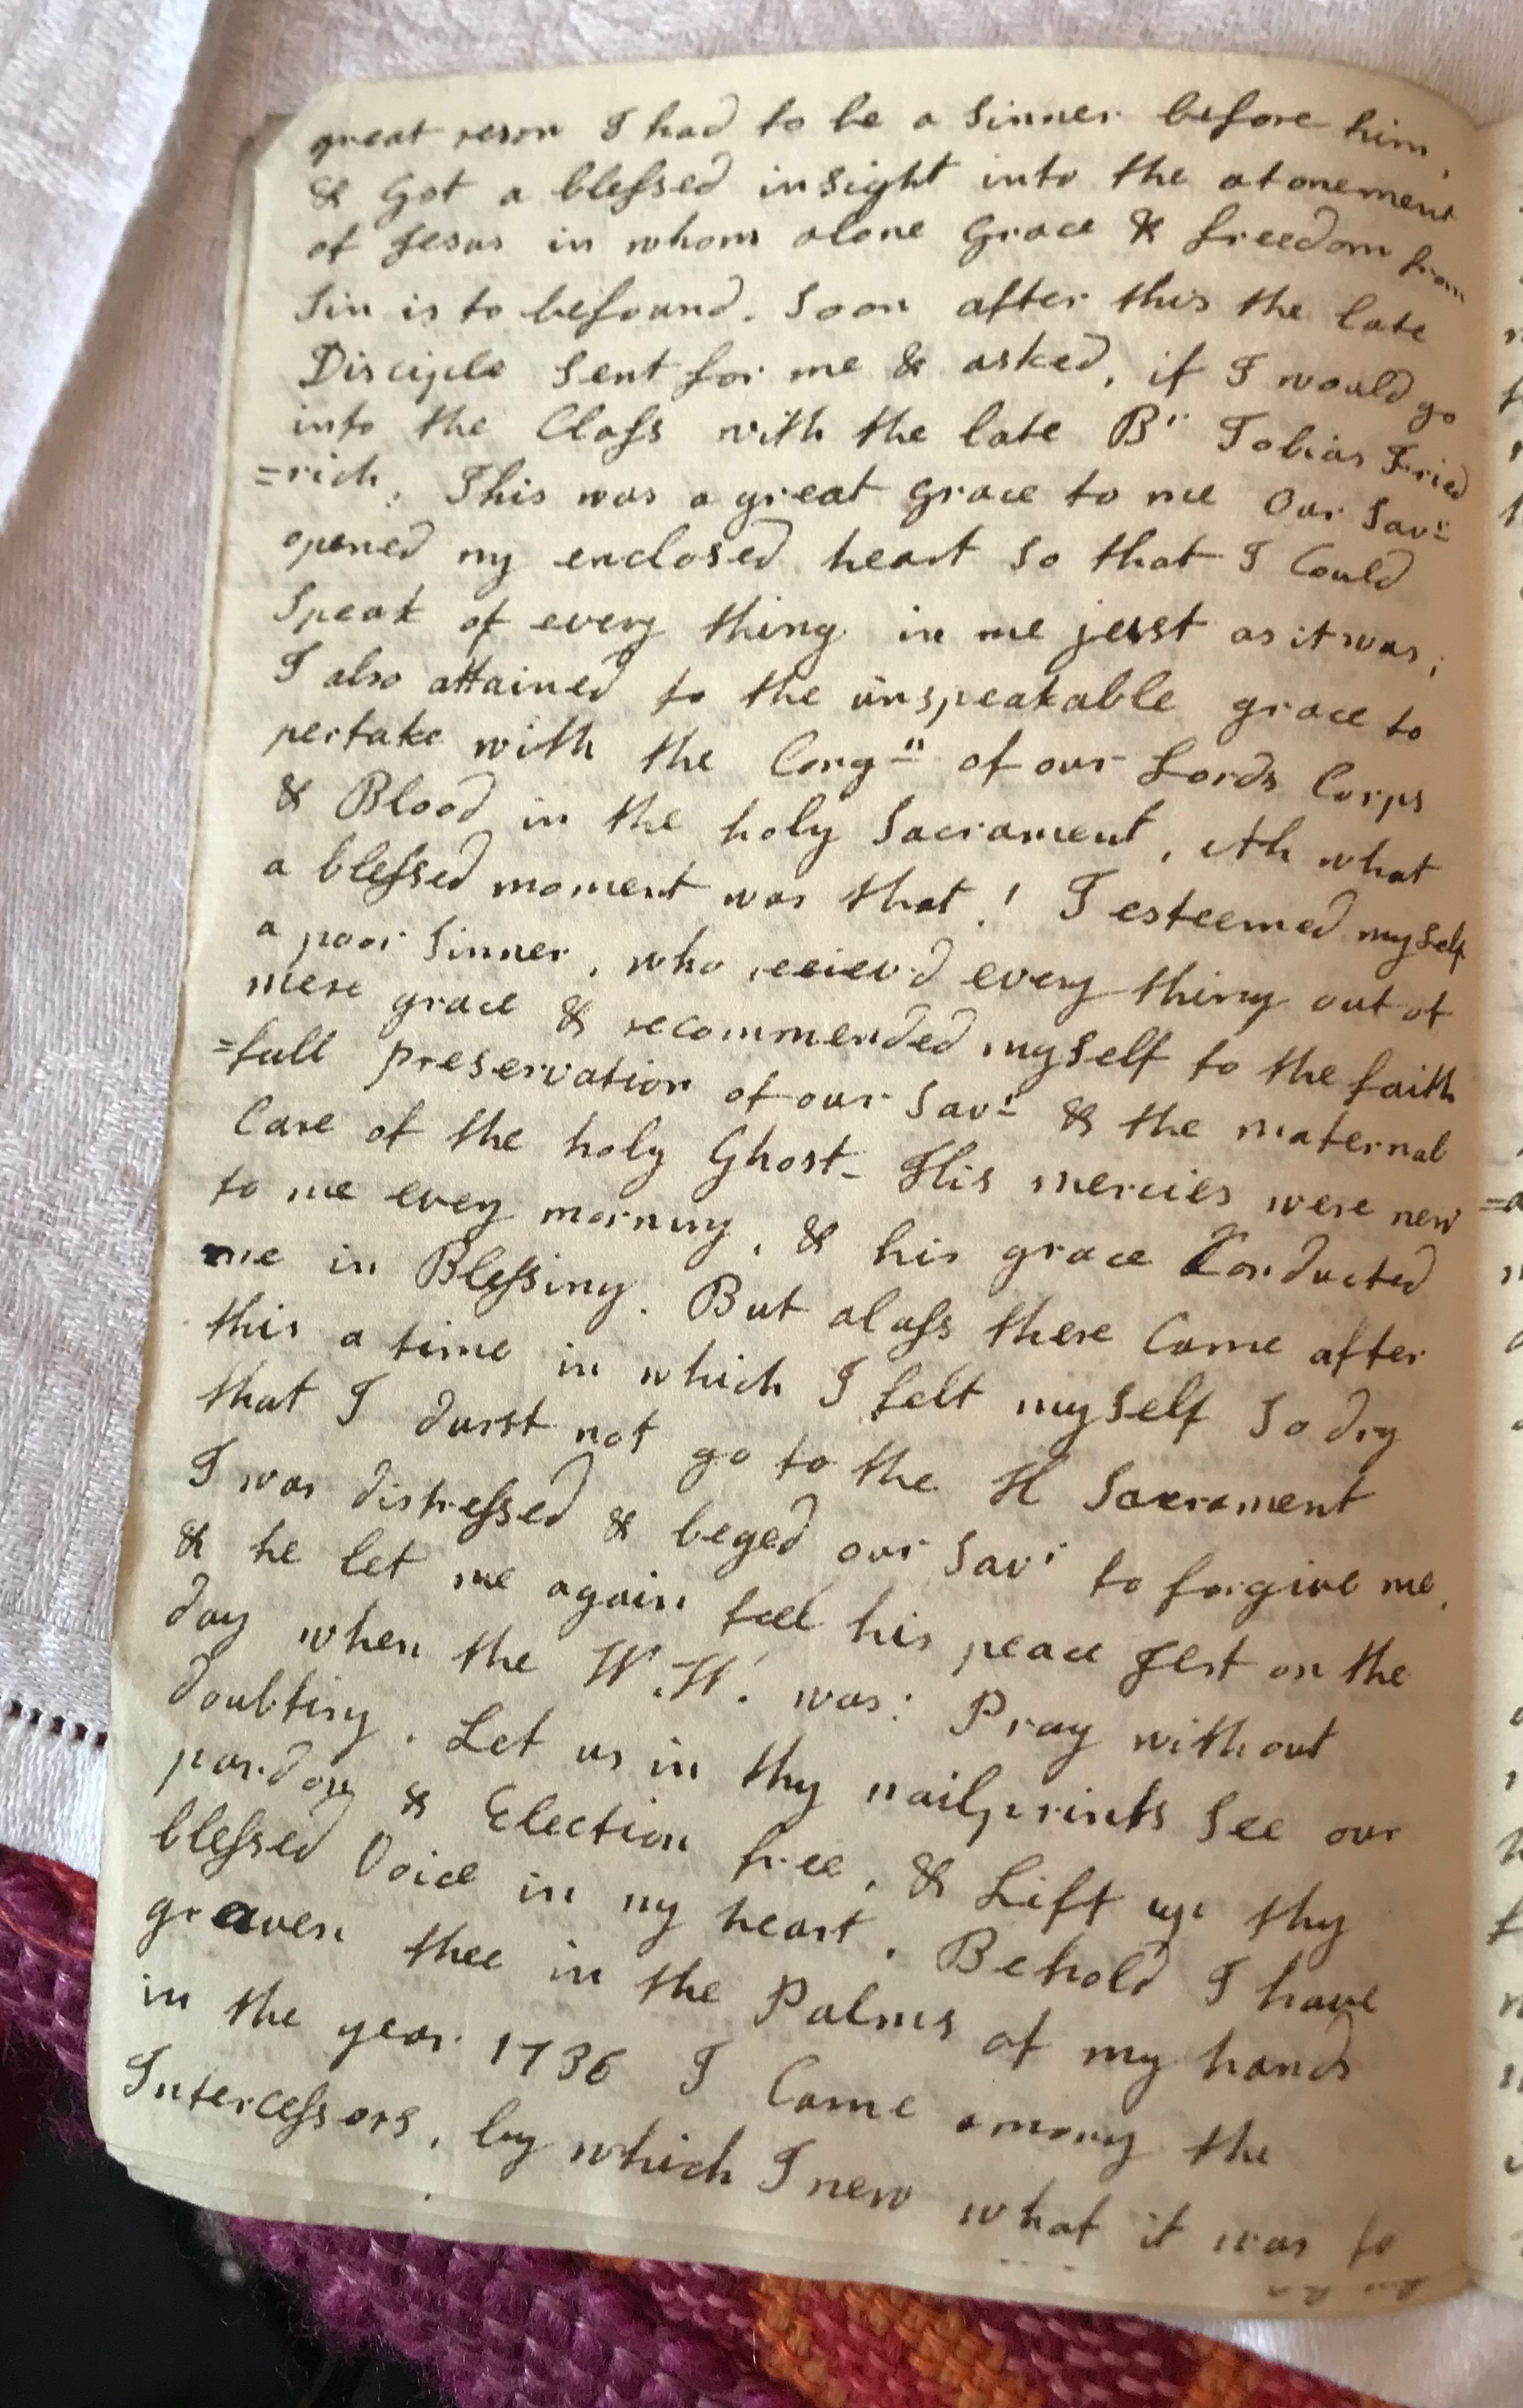 great reson I had to be a Sinner before him,
& Got a blessed insight into the atonement
of Jesus in whom alone Grace & freedom from
Sin is to befound. Soon after this the late
Disciple Sent for me & asked, if I would go
into the Class with the late Br Tobias Fried
=rich, This was a great Grace to me Our Savr
opened my enclosed heart So that I Could
Speak of every thing in me just as it was;
I also attained to the unspeakable grace to
pertake with the Congn of our Lords Corps
& Blood in the holy Sacrament, Ah what
a blessed moment was that! I esteemed myself
a poor Sinner, who reciev'd every thing out of
mere grace & recommended myself to the faith
=full preservation of our Savr & the maternal
Care of the holy Ghost - His mercies were new
to me every morning, & his grace Conducted
me in Blessing. But alass there Came after
this a time in which I felt myself So dry
that I durst not go to the H Sacrament
I was distressed & beged our Savr to forgive me,
& he let me again feel his peace Jest on the
day when the W.W. was: Pray without
doubting. Let us in thy nailprints See our
pardon & Election free, & Lift up thy
blessed Voice in my heart. Behold I have
graven thee in the Palms of my hands
in the year 1736 I Came among the
Intercessors, by which I new what it was to